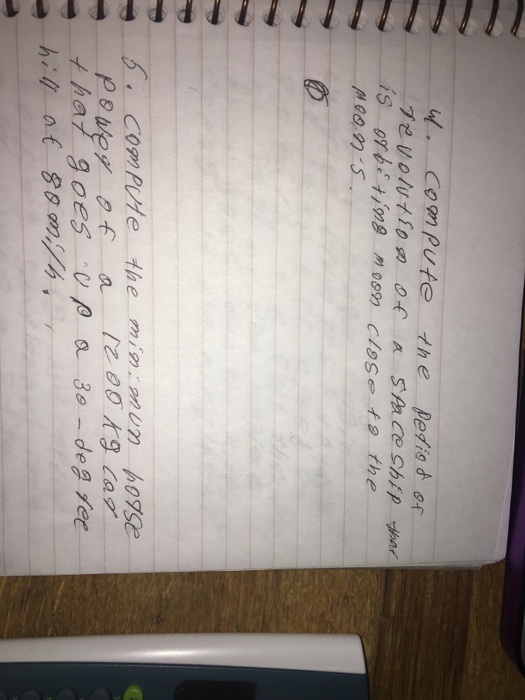 4. compute the period of
revolution of a spaceship that
is orbiting moon close to the
moon's.
5. compute the minimun horse
power of a 1200 kg car
that goes up a 30-degree
hill at 80mi/h.